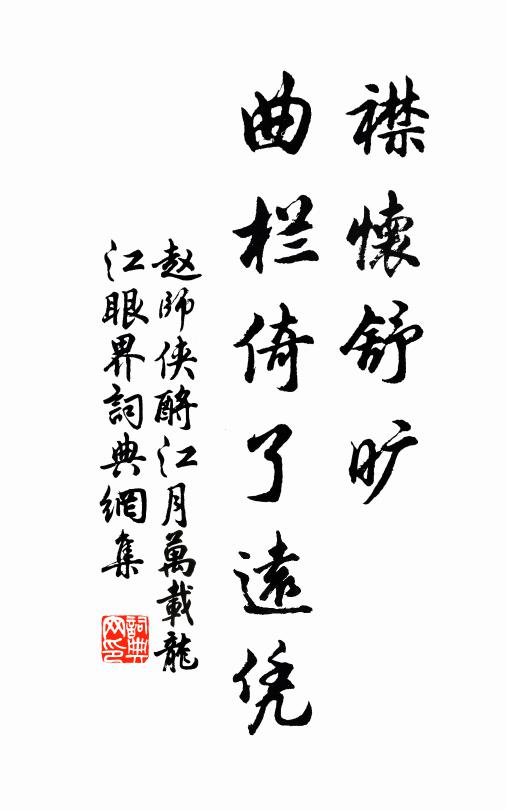 襟懷舒旷
曲栏倚了遠凭
赵師侠酹江月萬載龍
江眼界詞典網集
詞典网印